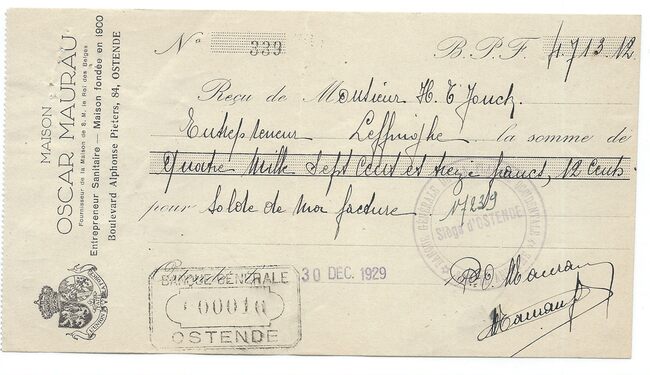 MAISON
OSCAR MAURAU
Fournisseur de la Maison de S. M. le Roi des Belges
Entrepreneur Sanitaire — Maison fondée en 1900
Boulevard Alphonse Pieters, 84, OSTENDE
N° 339 B. P. F. 4713.12
Reçu de Monsieur H. T Jonck
Entrepreneur Leffinghe la somme de
Quatre Mille Sept Cent et treize francs, 12 Cents
pour Solde de ma facture N/239
Siège d'OSTENDE
BANQUE GÉNÉRALE
00010
OSTENDE
30 DEC. 1929
O. Maurau
Maurau